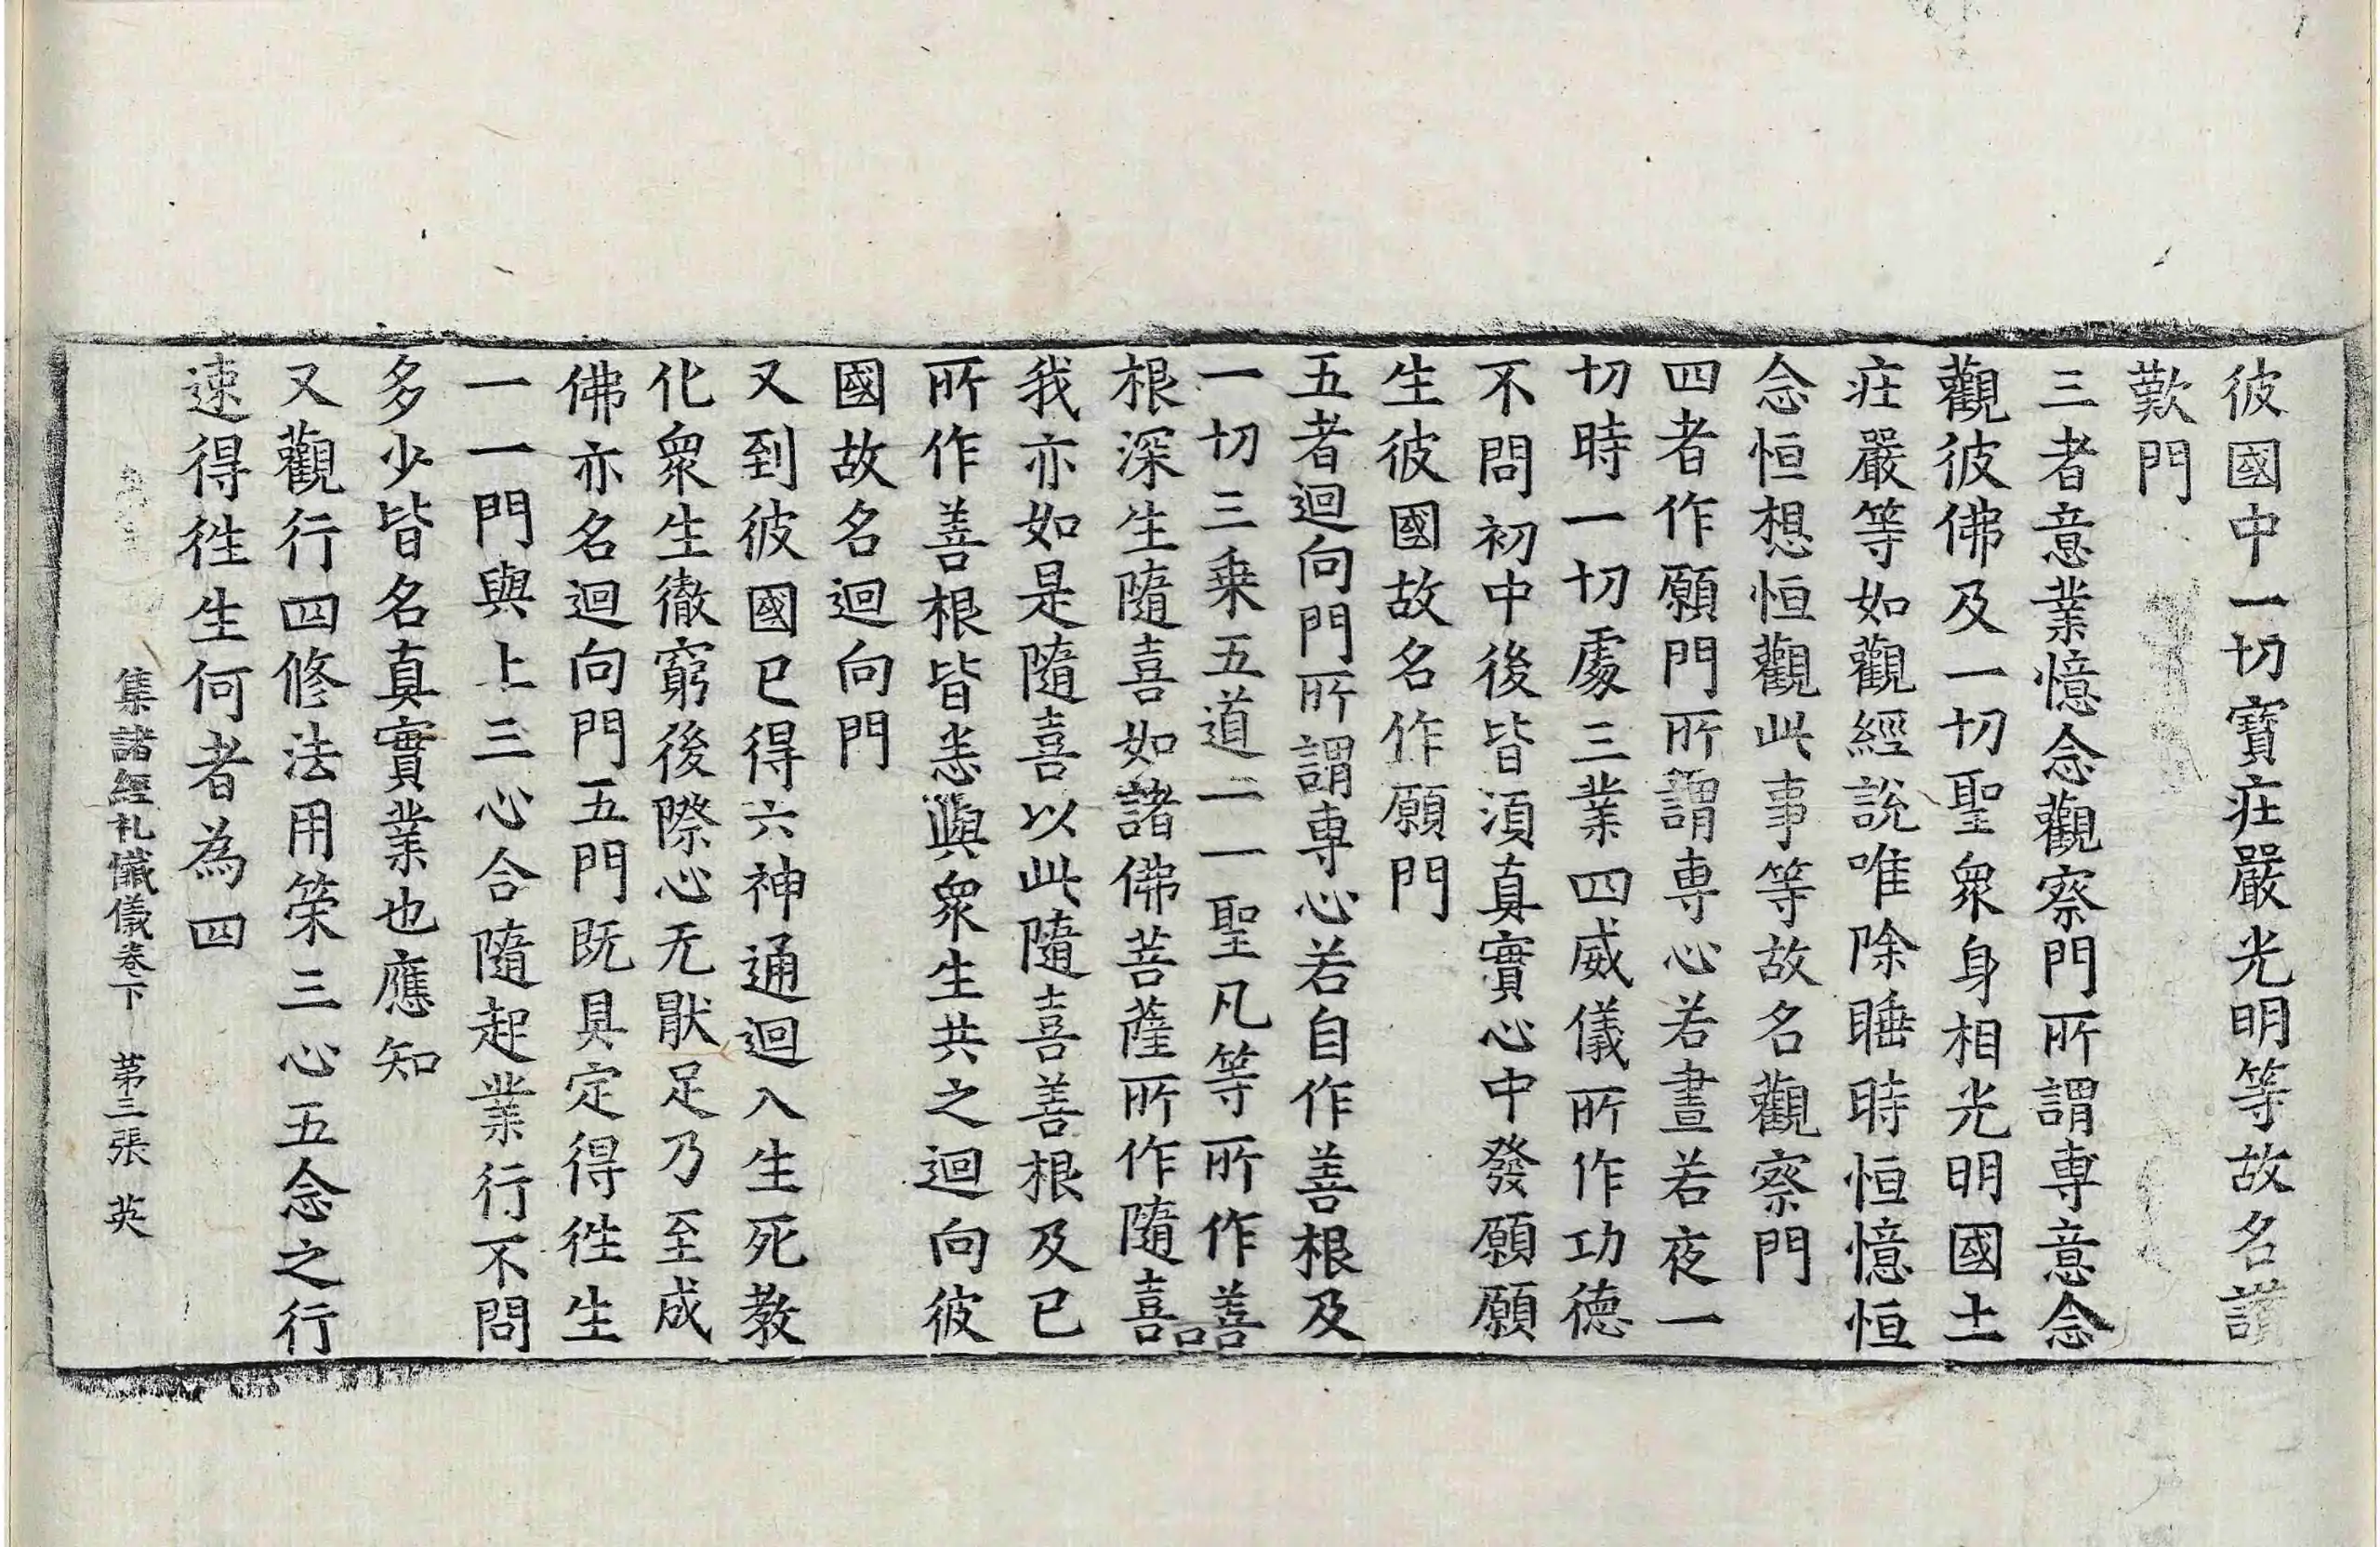 彼國中一切寶疘嚴光明等故名讃
歎門
三者意業憶念觀察門所謂專意念
觀彼佛及一切聖衆身相光明國土
疘嚴等如觀經說唯除睡時恒憶恒
念恒想恒觀此事等故名觀察門
四者作願門所謂專心若晝若夜一
切時一切處三業四威儀所作功德
不問初中後皆須真實心中發願願
生彼國故名作願門
五者迴向門所謂專心若自作善根及
一切三乗五道二一聖凡等所作善
根深生隨喜如諸佛菩薩所作隨喜
我亦如是隨喜以此隨喜善根及已
所作善根皆悉與衆生共之迴向彼
國故名迴向門
又到彼國已得六神通迴入生死教
化衆生徹窮後際心无猒足乃至成
佛亦名迴向門五門既具定得徃生
一一門與上三心合隨起業行不問
多少皆名真實業也應知
又觀行四修法用策三心五念之行
速得徃生何者為四
集諸經礼懺儀卷下 第三張 英